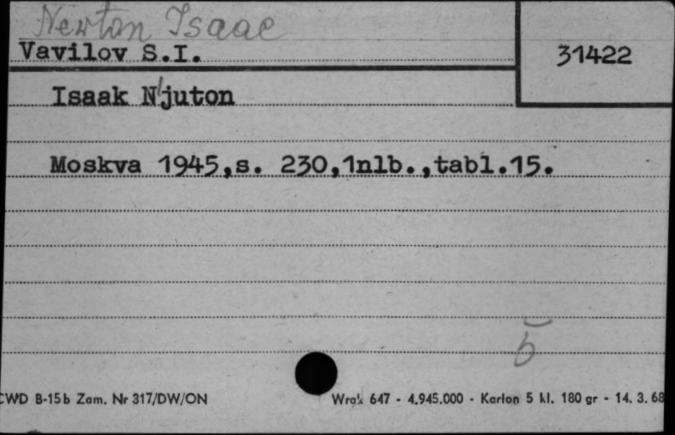 Newton Isaac
Vavilov S.I.
31422
Isaak N'juton
Moskva 1945,s. 230,1nlb.,tabl.15.
5
CWD B-15b Zam. Nr 317/DW/ON
Wrak 647 - 4.945.000 - Karton 5 kl. 180 gr - 14. 3. 68